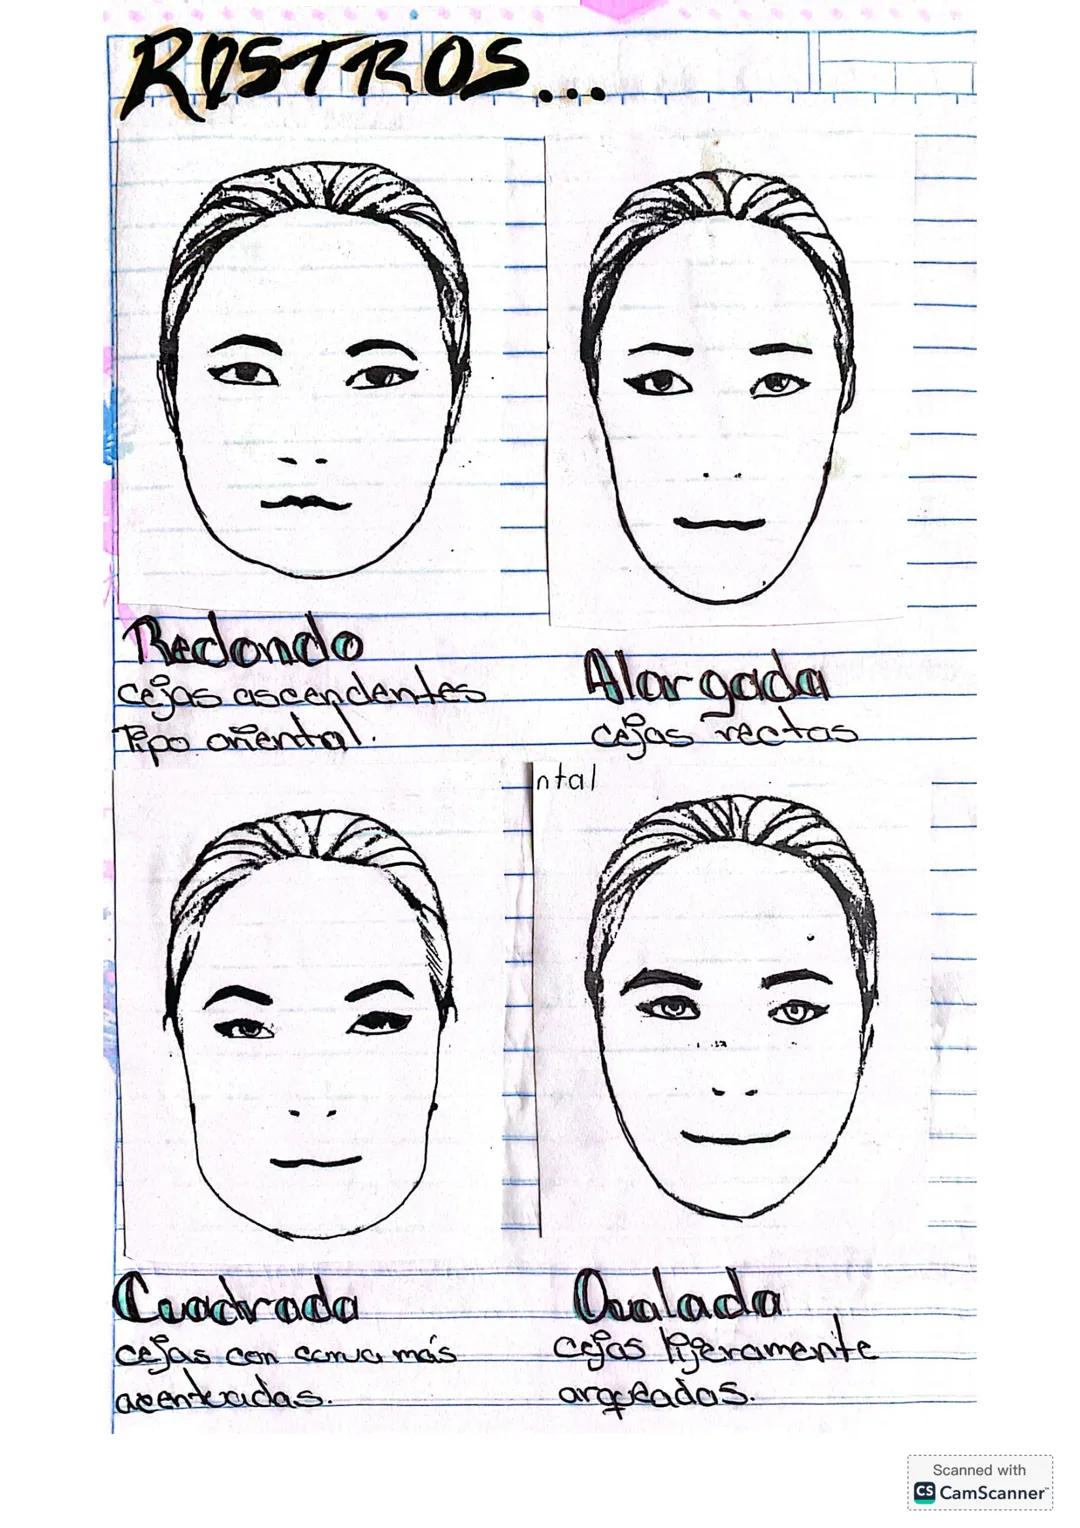 ROSTROS...
Redondo
cejas ascendentes
Tipo oriental.
Alargada
cejas rectas
ntal
Cuadrada
cejas con curva más
acentuadas.
Ovalada
cejas ligeramente
arqueadas.
Scanned with
CS CamScanner™